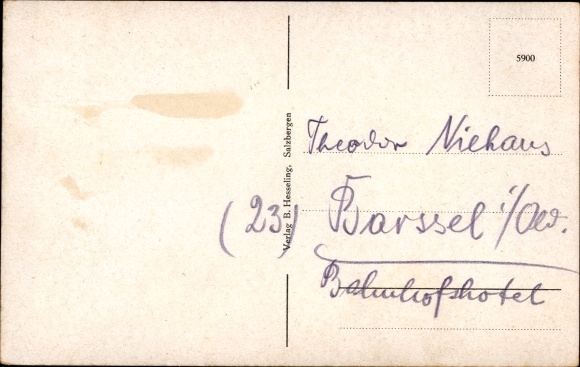 5900
Theodor Niehaus
(23) Barssel i/Old.
Bahnhofshotel
Verlag B. Hesseling, Salzbergen